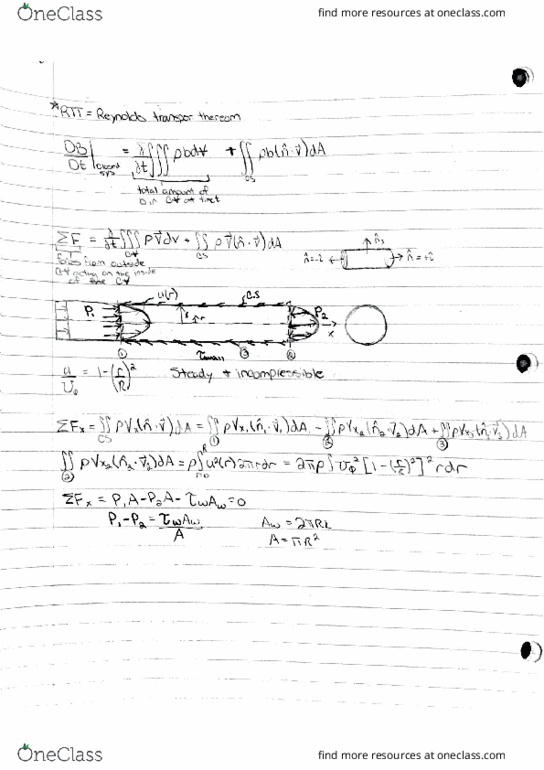 OneClass find more resources at oneclass.com
*RTT = Reynolds transpor thereom
DB/Dt | = ∂/∂t ∭ ρbdV + ∬ ρb(n̂·v̄)dA
sys CS
total amount of
ΣF = ∂/∂t ∭ ρV̄dV + ∬ ρV̄(n̂·V̄)dA
CV CS
from outside
CV acting on the inside
of the CV
u(r) C.S
P₁ r P₂
x
① τwall ③ ②
u/U₀ = 1-(r/R)² Steady + incompressible
ΣFx = ∬ ρVx(n̂·V̄)dA = ∬ ρVx₁(n̂₁·V̄₁)dA₁ - ∬ ρVx₂(n̂₂·V̄₂)dA + ∬ ρVx₃(n̂₃·V̄₃)dA
CS ① ② ③
∬ ρVx₂(n̂₂·V̄₂)dA = ρ∫u²(r)2πrdr = 2πρ∫U₀²[1-(r/R)²]²rdr
②
ΣFx = P₁A-P₂A-τwAw=0
P₁-P₂ = τwAw/A Aw = 2πRL
A=πR²
OneClass find more resources at oneclass.com